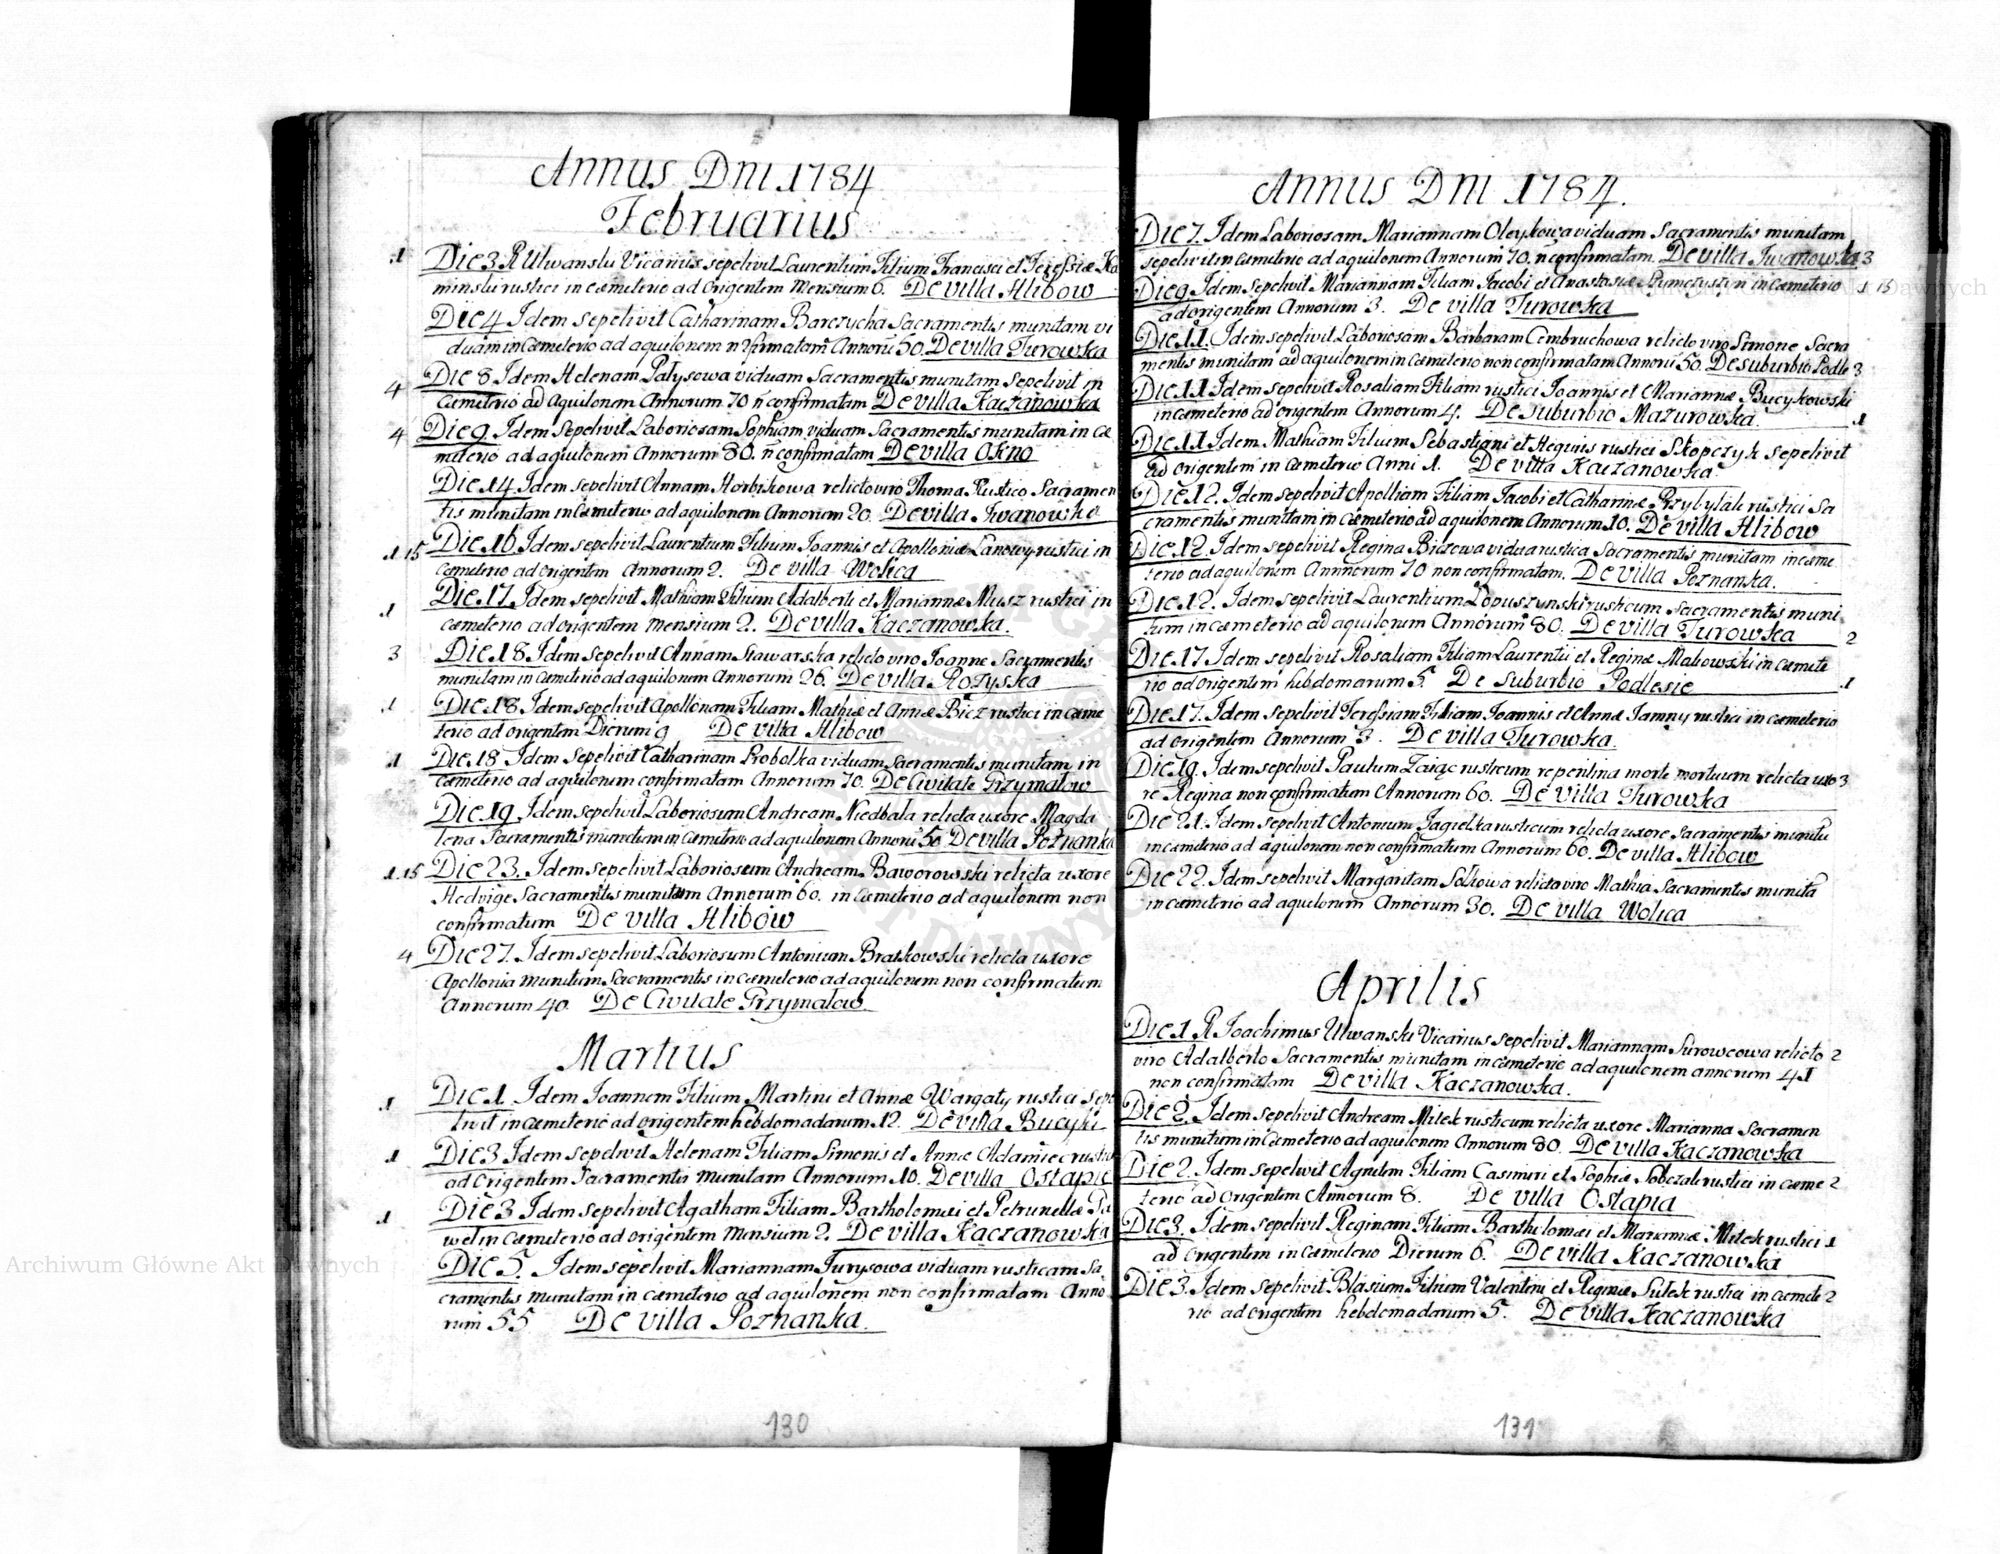 Annus Dni 1784
Februarius
1 Die 3 R Ulwanski Vicarius sepelivit Laurentium Filium Francisci et Teressiæ Ka
minski rustici in cæmeterio ad origentem Mensium 6. De villa Hlibow
Die 4 Idem sepelivit Catharinam Barczycha Sacramentis munitam vi
duam in cæmeterio ad aquilonem n 2firmatam Annorū 50. De villa Turowka
4 Die 8 Idem Helenam Patysowa viduam Sacramentis munitam Sepelivit in
cæmeterio ad Aquilonem Annorum 70 ñ confirmatam De villa Kaczanowka
4 Die 9 Idem Sepelivit Laboriosam Sophiam viduam Sacramentis munitam in cæ
meterio ad aquilonem Annorum 80. ñ confirmatam De villa Okno
Die 14. Idem sepelivit Annam Horbikowa relicto viro Thoma Rustico Sacramen
tis munitam in Cæmeterio ad aquilonem Annorum 20. De villa Iwanowka
1 15 Die 16 Idem sepelivit Laurentium Filium Joannis et Apolloniæ Lanowy rustici in
cæmeterio ad origentem Annorum 2. De villa Wolica
1 Die 17 Idem sepelivit Mathiam Filium Adalberti et Mariannæ Musz rustici in
cæmeterio ad origentem mensium 2. De villa Kaczanowka.
3 Die 18. Idem Sepelivit Annam Stawarska relicto viro Joanne Sacramentis
munitam in Cæmeterio ad aquilonem Annorum 26. De villa Rożyska
1 Die 18 Idem sepelivit Apollonam Filiam Mathiæ et Annæ Biez rustici in cæme
terio ad origentem Dierum 9 De villa Hlibow
1 Die 18 Idem Sepelivit Catharinam Probolka viduam Sacramentis munitam in
Cæmeterio ad aquilonem confirmatam Annorum 70. De Civitate Grzymałow
Die 19 Idem sepelivit Laboriosum Andream Niedbala relicta uxore Magda
lena Sacramentis munitum in Cæmeterio ad aquilonem Annorū 50 De villa Poznanka
1 15 Die 23. Idem sepelivit Laboriosum Andream Baworowski relicta uxore
Hedvige Sacramentis munitum Annorum 60. in Cæmeterio ad aquilonem non
confirmatum De villa Hlibow
4 Die 27. Idem sepelivit Laboriosum Antonium Bratkowski relicta uxore
Apollonia munitum Sacramentis in cæmeterio ad aquilonem non confirmatum
Annorum 40. De Civitate Grzymałow
Martius
1 Die 1. Idem Joannem Filium Martini et Annæ Wargaty rustici sepe
livit in cæmeterio ad origentem hebdomadarum 12. De villa Bucyki
1 Die 3 Idem sepelivit Helenam Filiam Simonis et Annæ Adamiec rustici
ad Origentem Sacramentis munitam Annorum 10. De villa Ostapie
1 Die 3 Idem sepelivit Agatham Filiam Bartholomæi et Petrunellæ Pa
wel in Cæmeterio ad origentem mensium 2. De villa Kaczanowka
Die 5. Idem sepelivit Mariannam Jurysowa viduam rusticam Sa
cramentis munitam in cæmeterio ad aquilonem non confirmatam Anno
rum 55 De villa Poznanka.
130
Annus Dni 1784.
Die 7. Idem Laboriosam Mariannam Oleykowa viduam Sacramentis munitam
sepelivit in Cæmeterio ad aquilonem Annorum 70. ñ confirmatam. De villa Iwanowka 3
Die 9 Idem Sepelivit Mariannam Filiam Jacobi et Anastasiæ in cæmeterio 1 15
ad origentem Annorum 3. De villa Turowka
Die 11. Idem sepelivit Laboriosam Barbaram Cembruchowa relicto viro Simone Sacra
mentis munitam ad aquilonem in cæmeterio non confirmatam Annorū 50. De suburbio Podle 3
Die 11 Idem sepelivit Rosaliam Filiam rustici Joannis et Mariannæ Bucykowski
in cæmeterio ad origentem Annorum 4. De Suburbio Mazurowka. 1
Die 11 Idem Mathiam Filium Sebastiani et Hegnis rustici Skopczyk sepelivit
ad origentem in cæmeterio Anni 1. De villa Kaczanowka
Die 12. Idem sepelivit Apolliam Filiam Jacobi et Catharinæ Przybylak rustici Sa
cramentis munitam in Cæmeterio ad aquilonem Annorum 10. De villa Hlibow
Die 12. Idem sepelivit Regina Biczowa vidua rustica Sacramentis munitam in cæme
terio ad aquilonem Annorum 70 non confirmatam. De villa Poznanka.
Die 12. Idem sepelivit Laurentium Łopuszynski rusticum Sacramentis muni
tum in cæmeterio ad aquilonem Annorum 80. De villa Turowka 2
Die 17 Idem sepelivit Rosaliam Filiam Laurentii et Reginæ Makowski in cæmete
rio ad origentem hebdomarum 5. De suburbio Podlesie 1
Die 17. Idem sepelivit Teressiam Filiam Joannis et Annæ Jamny rustici in cæmeterio
ad origentem Annorum 3. De villa Turowka.
Die 19. Idem sepelivit Paulum Zaiąc rusticum repentina morte mortuum relicta uxo 3
re Regina non confirmatum Annorum 60. De villa Turowka
Die 21. Idem sepelivit Antonium Jagielka rusticum relicta uxore Sacramentis munitū
in cæmeterio ad aquilonem non confirmatum Annorum 60. De villa Hlibow
Die 22. Idem sepelivit Margaritam Solkowa relicto viro Mathia Sacramentis munitā
in cæmeterio ad aquilonem Annorum 30. De villa Wolica
Aprilis
Die 1 R Joachimus Ulwanski Vicarius sepelivit Mariannam Surowcowa relicto 2
viro Adalberto Sacramentis munitam in cæmeterio ad aquilonem annorum 41
non confirmatam De villa Kaczanowka.
Die 2. Idem sepelivit Andream Mitek rusticum relicta uxore Marianna Sacramen
tis munitum in Cæmeterio ad aquilonem Annorum 80. De villa Kaczanowka
Die 2. Idem sepelivit Agnitem Filiam Casimiri et Sophiæ Sobczak rustici in cæme 2
terio ad origentem Annorum 8. De villa Ostapia
Die 3. Idem sepelivit Reginam Filiam Bartholomei et Mariannæ Mitek rustici 1
ad origentem in cæmeterio Dierum 6. De villa Kaczanowka
Die 3. Idem sepelivit Blasium Filium Valentini et Reginæ Sutek rustici in cæmete 2
rio ad origentem hebdomadarum 5. De villa Kaczanowka
131
Archiwum Główne Akt Dawnych